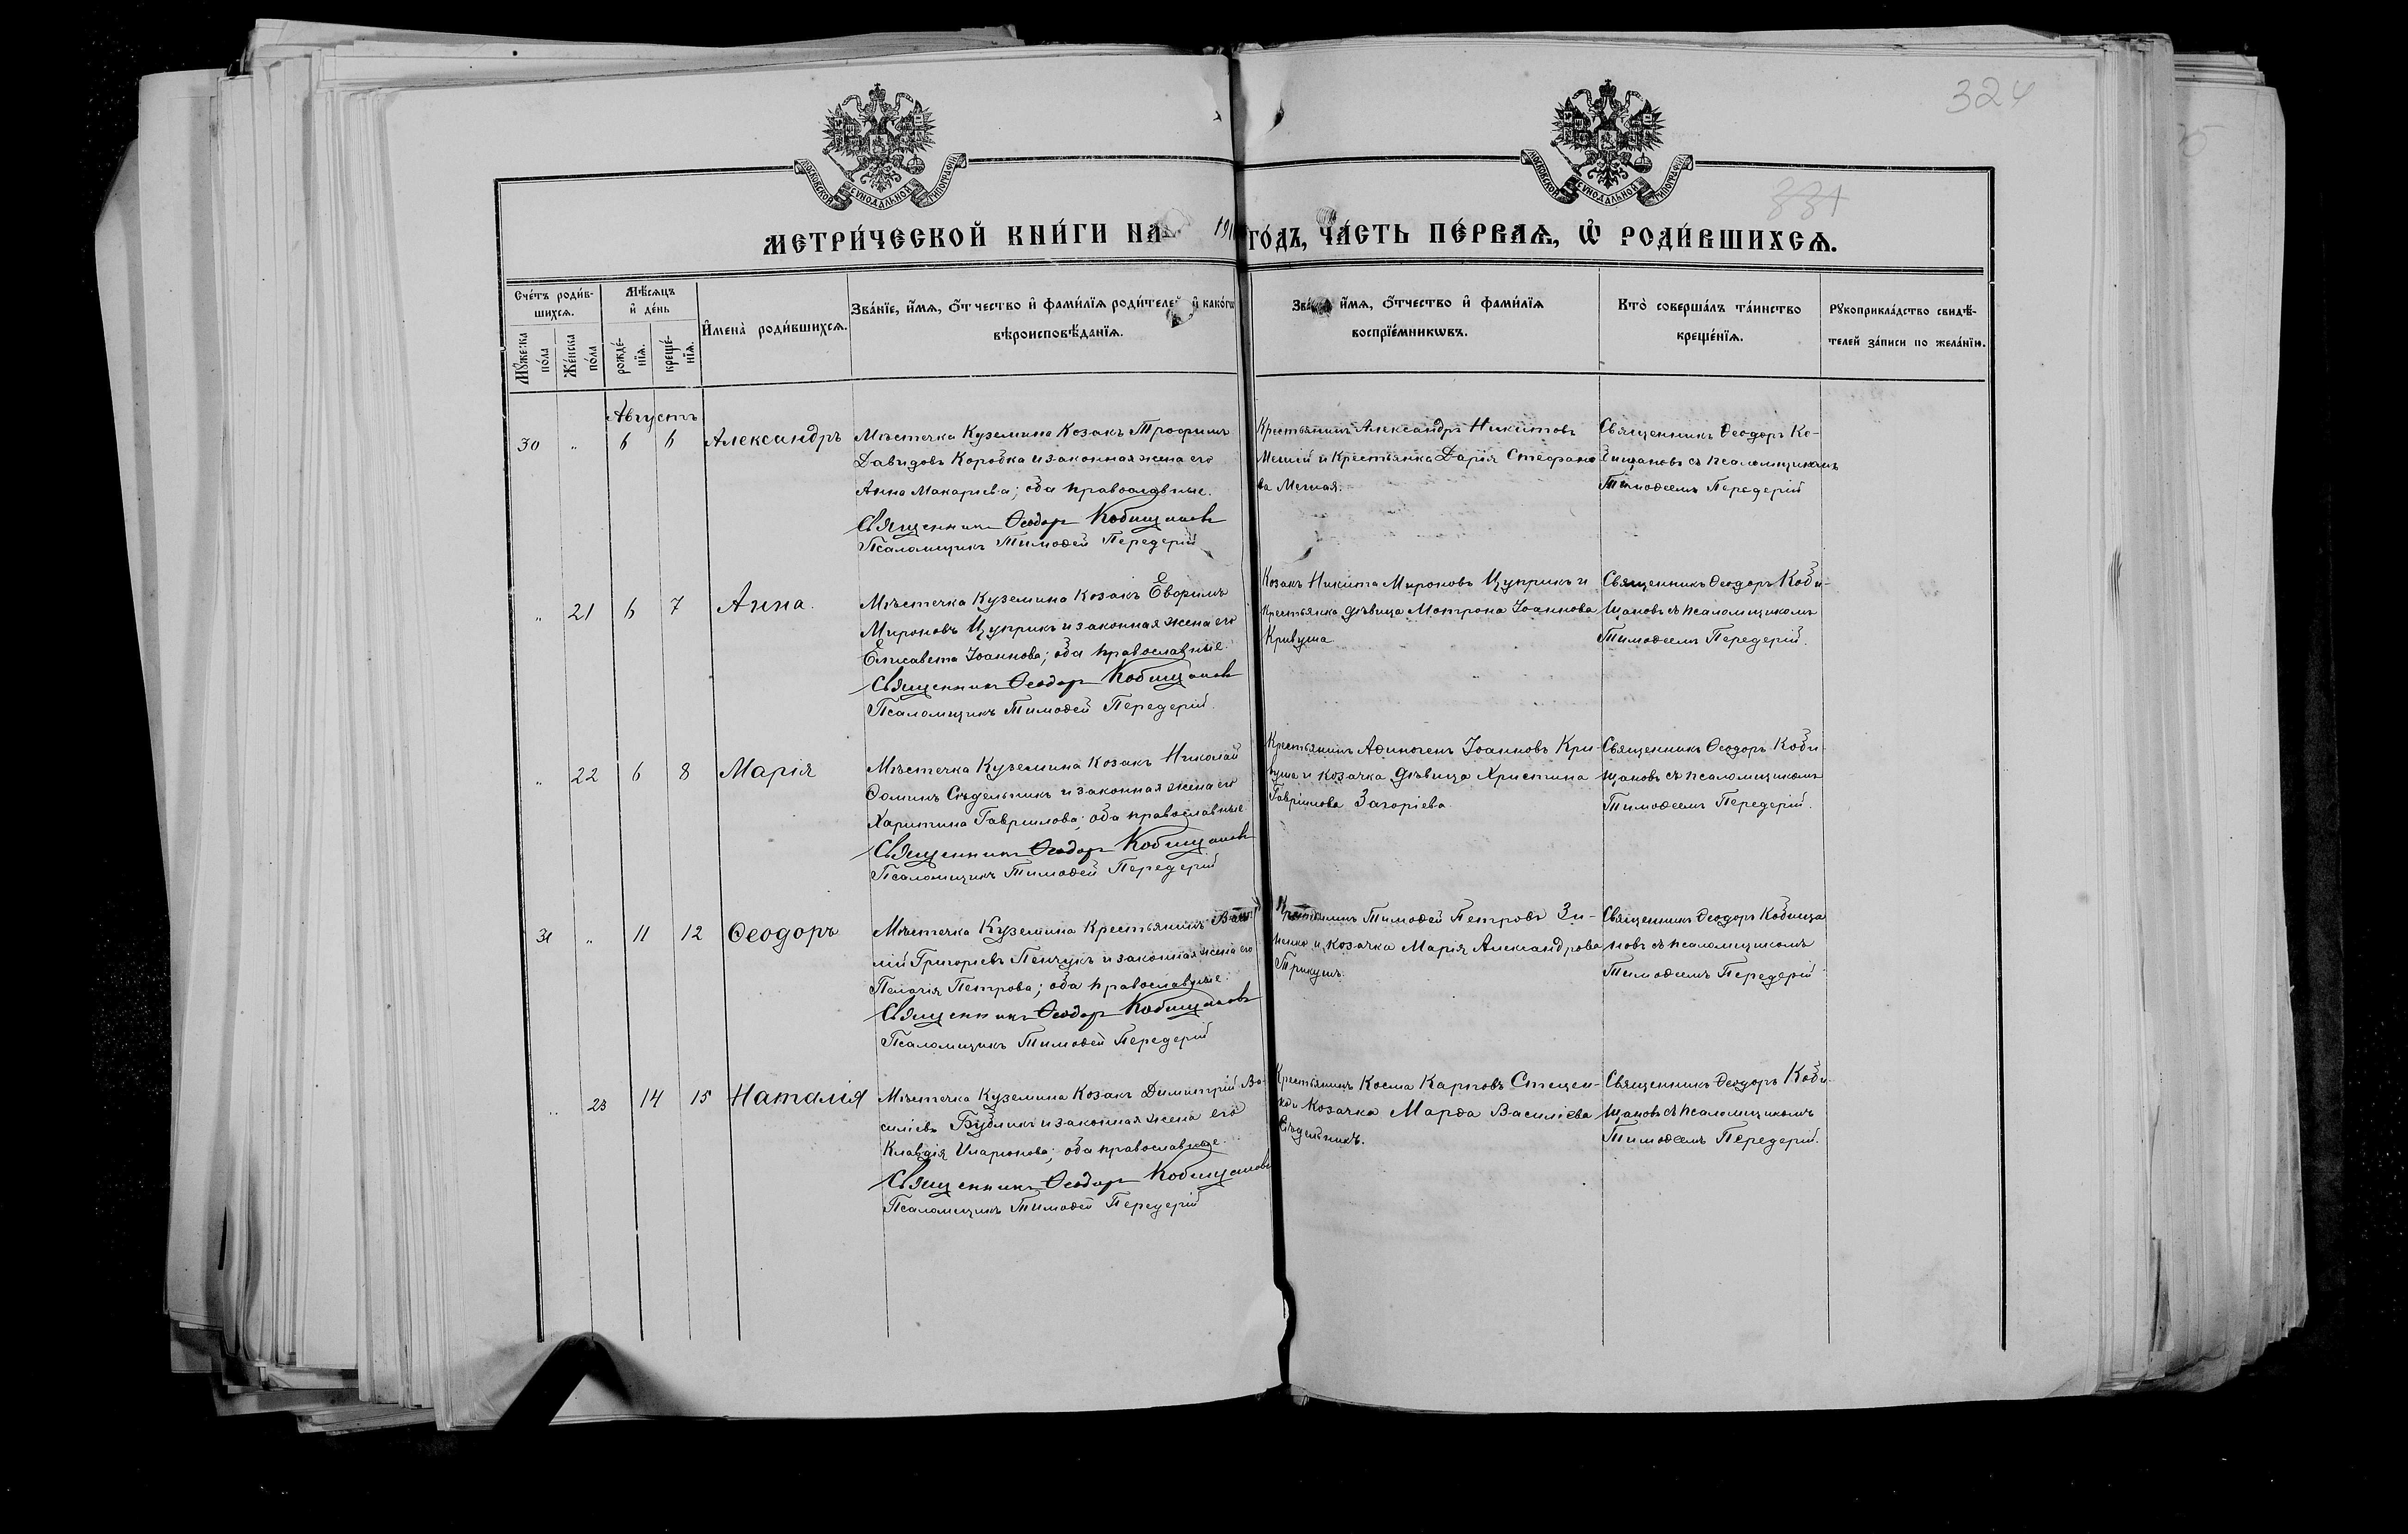 324
331
МОСКОВСКОЙ СѴНОДАЛЬНОЙ ТИПОГРАФІИ
МОСКОВСКОЙ СѴНОДАЛЬНОЙ ТИПОГРАФІИ
МЕТРИ́ЧЕСКОЙ КНИ́ГИ НА 191 ГО́ДЪ, ЧА́СТЬ ПЕ́РВАѦ, Ѡ҆ РОДИ́ВШИХСѦ.
Сче́тъ роди́в-
шихсѧ.
Мꙋ́жеска
по́ла
Же́нска
по́ла
Мѣ́сѧцъ
и҆ де́нь
рожде́-
нїѧ.
креще́-
нїѧ.
И҆мена̀ роди́вшихсѧ.
Зва́нїе, и҆́мѧ, ѻ҆́тчество и҆ фами́лїѧ роди́телей и҆ како́гѡ
вѣроисповѣ́данїѧ.
и҆́мѧ, ѻ҆́тчество и҆ фами́лїѧ
воспрїе́мникѡвъ.
Кто̀ соверша́лъ та́инство
креще́нїѧ.
Рꙋкоприкла́дство свидѣ́-
телей за́писи по жела́нїю.
Августъ
30 „ 6 6 Александръ
Мѣстечка Куземина Козакъ Трофимъ
Давидовъ Коробка и законная жена его
Анна Макаріева; оба православные.
Священникъ Ѳеодоръ Кобищановъ
Псаломщикъ Тимоѳей Передерій
Крестьянинъ Александръ Никитовъ
и Крестьянка Дарія Стефано
ва
Священникъ Ѳеодоръ Ко-
бищановъ съ псаломщикомъ
Тимоѳеемъ Передерій
„ 21 6 7 Анна.
Мѣстечка Куземина Козакъ Евфимъ
Мироновъ Цуприкъ и законная жена его
Елисавета Іоаннова; оба православные.
Священникъ Ѳеодоръ Кобищановъ
Псаломщикъ Тимоѳей Передерій.
Козакъ Никита Мироновъ Цуприкъ и
Крестьянка дѣвица Мотрона Іоаннова
Кривуша
Священникъ Ѳеодоръ Коби-
щановъ съ псаломщикомъ
Тимоѳеемъ Передерій.
„ 22 6 8 Марія
Мѣстечка Куземина Козакъ Николай
Ѳоминъ Сѣдельникъ и законная жена его
Харитина Гавриилова; оба православные
Священникъ Ѳеодоръ Кобищановъ
Псаломщикъ Тимоѳей Передерій
Крестьянинъ Аѳиногенъ Іоанновъ Кри-
вуша и козачка дѣвица Христина
Гавриилова Загоріева
Священникъ Ѳеодоръ Коби-
щановъ съ псаломщикомъ
Тимоѳеемъ Передерій.
31 „ 11 12 Ѳеодоръ
Мѣстечка Куземина Крестьянинъ Васи
лій Григоріевъ Пенчукъ и законная жена его
Пелагія Петрова; оба православные.
Священникъ Ѳеодоръ Кобищановъ
Псаломщикъ Тимоѳей Передерій
Крестьянинъ Тимоѳей Петровъ Зи-
ненко и козачка Марія Александрова
Трикушъ.
Священникъ Ѳеодоръ Кобища
новъ съ псаломщикомъ
Тимоѳеемъ Передерій
„ 23 14 15 Наталія
Мѣстечка Куземина Козакъ Димитрій Ва-
силіевъ Бубликъ и законная жена его
Клавдія Иларіонова; оба православные.
Священникъ Ѳеодоръ Кобищановъ
Псаломщикъ Тимоѳей Передерій
Крестьянинъ Косма Карповъ Стецен-
ко и Козачка Марѳа Василіева
Сѣдельникъ.
Священникъ Ѳеодоръ Коби-
щановъ съ псаломщикомъ
Тимоѳеемъ Передерій.